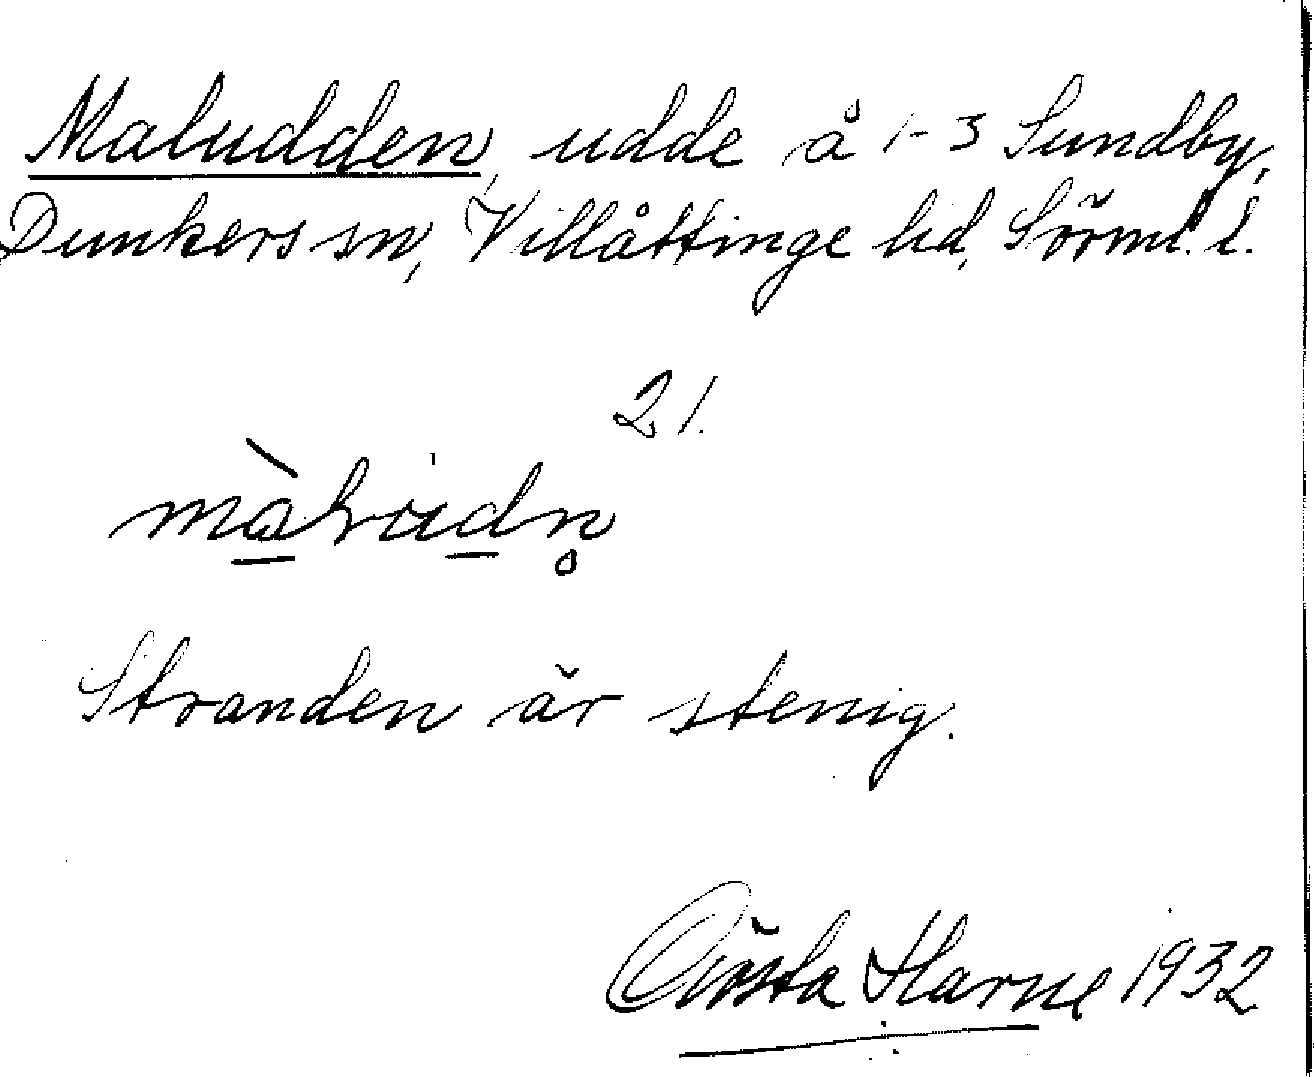 Maludden, udde å 1-3 Sundby,
Dunkers sn, Villåttinge hd, Sörml. l.
21.
Stranden är stenig.
Gösta Harne 1932